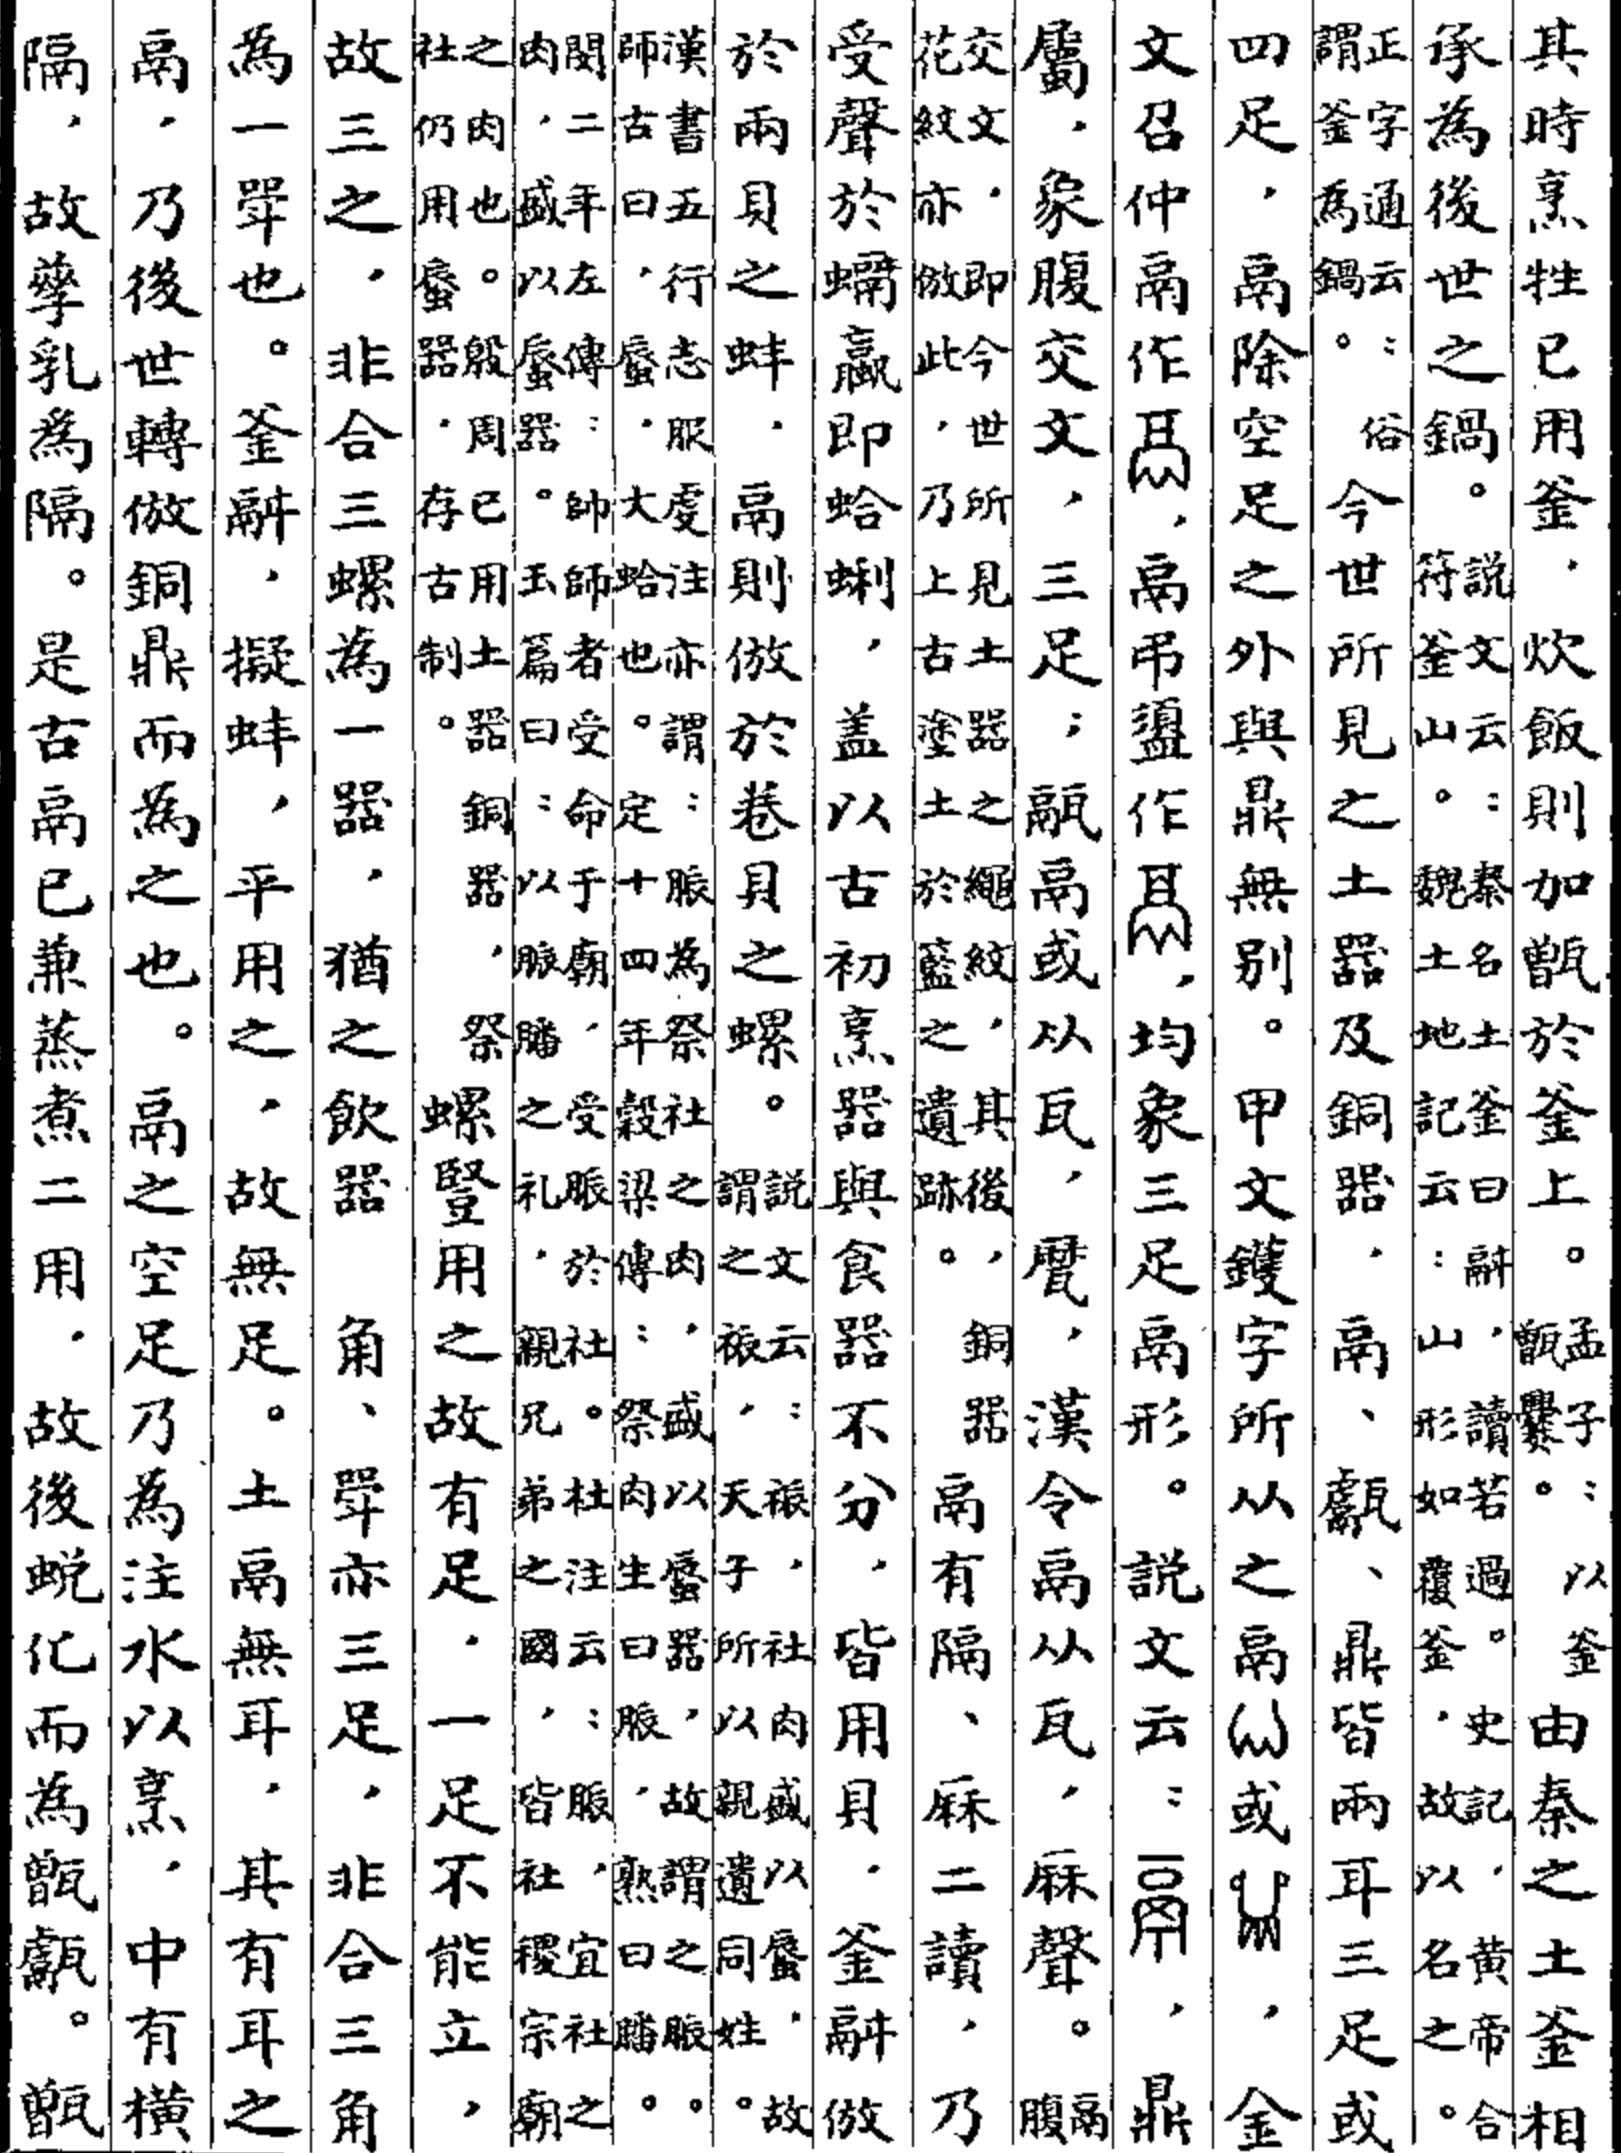 其時烹牲已用釜，炊飯則加甑於釜上。孟子：以釜甑爨。由秦之土釜相
承為後世之鍋。說文云：秦名土釜曰䰙，讀若過。史記，黃帝合符釜山。魏土地記云：山形如覆釜，故以名之。
正字通云：俗謂釜為鍋。今世所見之土器及銅器，鬲、甗、鼎皆兩耳三足或
四足，鬲除空足之外與鼎無別。甲文鑊字所从之鬲或，金
文召仲鬲作，鬲弔盨作，均象三足鬲形。說文云：鬲，鼎
屬，象腹交文，三足；䰛鬲或从瓦，㽁，漢令鬲从瓦，厤聲。鬲腹
交文，即今世所見土器之繩紋，其後，銅器花紋亦倣此，乃上古塗土於籃之遺跡。鬲有隔、厤二讀，乃
受聲於螎蠃即蛤蜊，盖以古初烹器與食器不分，皆用貝，釜䰙倣
於兩貝之蚌，鬲則倣於巷貝之螺。說文云：祳，社肉盛以蜃，故謂之祳，天子所以親遺同姓。
漢書五行志服虔注亦謂：脤為祭社之肉，盛以蜃器，故謂之脤。師古曰，蜃，大蛤也。定十四年穀梁傳：祭肉生曰脤，熟曰膰。
閔二年左傳：帥師者受命于廟，受脤於社。杜注云：脤，宜社之肉，盛以蜃器。玉篇曰：以脤膰之礼，親兄弟之國，皆社稷宗廟
之肉也。殷周已用土器銅器，祭社仍用蜃器，存古制。螺豎用之故有足，一足不能立，
故三之，非合三螺為一器，猶之飲器角、斝亦三足，非合三角
為一斝也。釜䰙，擬蚌，平用之，故無足。土鬲無耳，其有耳之
鬲，乃後世轉倣銅鼎而為之也。鬲之空足乃為注水以烹，中有橫
隔，故孳乳為隔。是古鬲已兼蒸煮二用，故後蜕化而為甑甗。甑